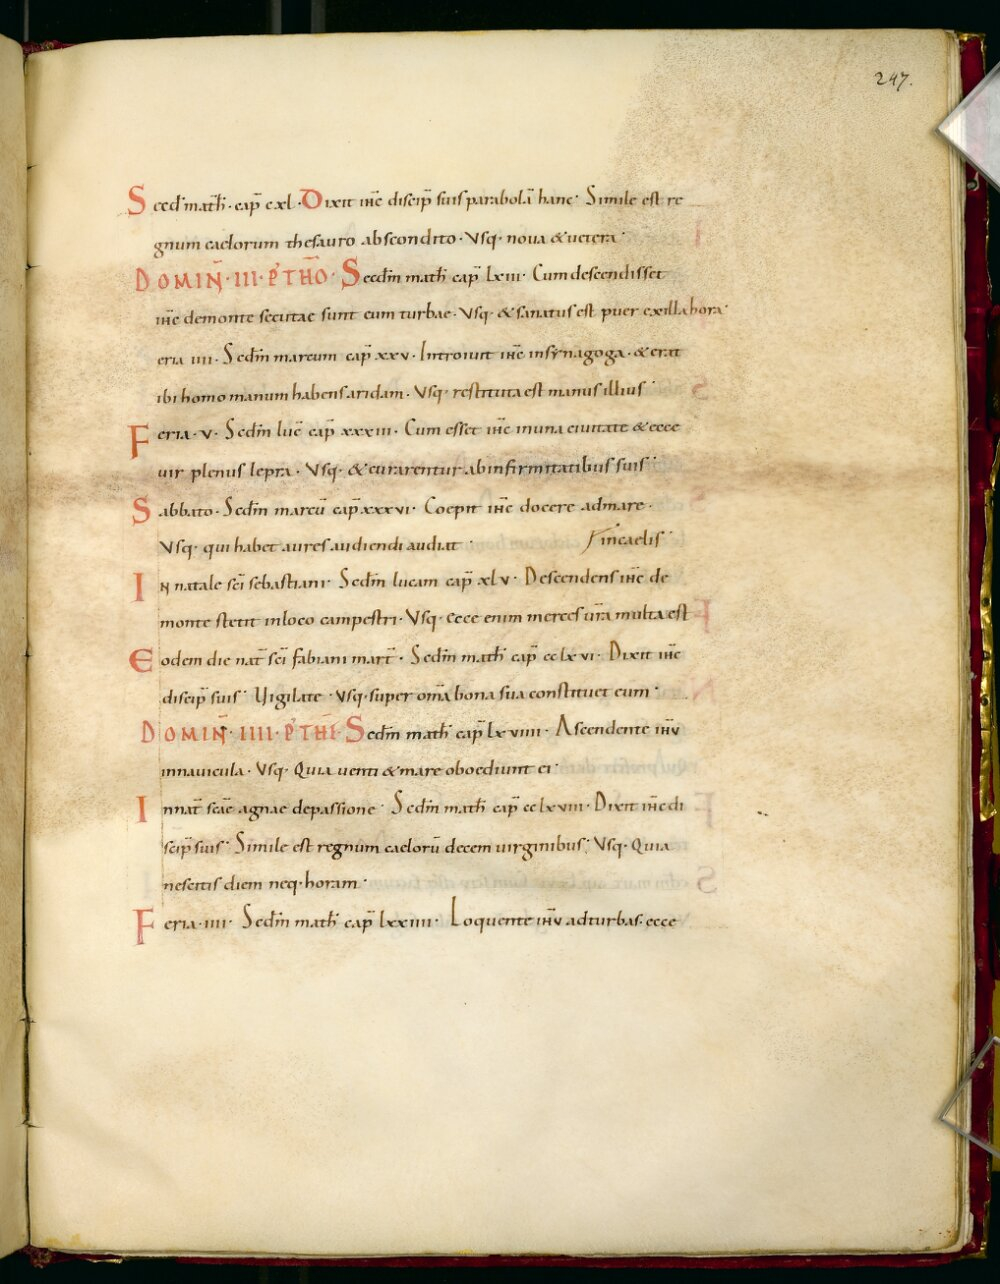 247.
S ecd' math̄· cap̄ cxl· Dixit ih̄c discip̄ suis parabolā hanc· Simile est re
gnum caelorum thesauro abscondito· Vsq· noua & uetera·
DOMIN̄· III· P' THEO· Secdm̄ math̄ cap̄ lxiii· Cum descendisset
ih̄c demonte secutae sunt eum turbae· Vsq· & sanatus est puer exillahora·
eria iiii· Secdm̄ marcum cap̄ xxv· Introiuit ih̄c insynagoga· & erat
ibi homo manum habens aridam· Vsq· restituta est manus illius·
Feria· v· Secdm̄ luc̄ cap̄ xxxiii· Cum esset ih̄c inuna ciuitate & ecce
uir plenus lepra· Vsq· & curarentur abinfirmitatibus suis·
Sabbato· Secdm̄ marcū cap̄ xxxvi· Coepit ih̄c docere admare·
Vsq· qui habet aures audiendi audiat·
IN natale sc̄i sebastiani· Secdm̄ lucam cap̄ xlv· Descendens ih̄c de
monte stetit inloco campestri· Vsq· ecce enim merces ūra multa est
Eodem die nat̄ sc̄i fabiani mart̄· Secdm̄ math̄ cap̄ cclxvi· Dixit ih̄c
discip̄ suis· Uigilate· Vsq· super om̄a bona sua constituet eum·
DOMIN̄· IIII· P' THEI· Secdm̄ math̄ cap̄ lxviiii· Ascendente ih̄u
innauicula· Vsq· Quia uenti & mare oboediunt ei·
Innat̄ sc̄ae agnae depassione· Secdm̄ math̄ cap̄ cclxviii· Dixit ih̄c di
scip̄ suis· Simile est regnum caelorū decem uirginibus· Vsq· Quia
nescitis diem neq· horam·
Feria· iiii· Secdm̄ math̄ cap̄ lxxiiii· Loquente ih̄u adturbas· ecce